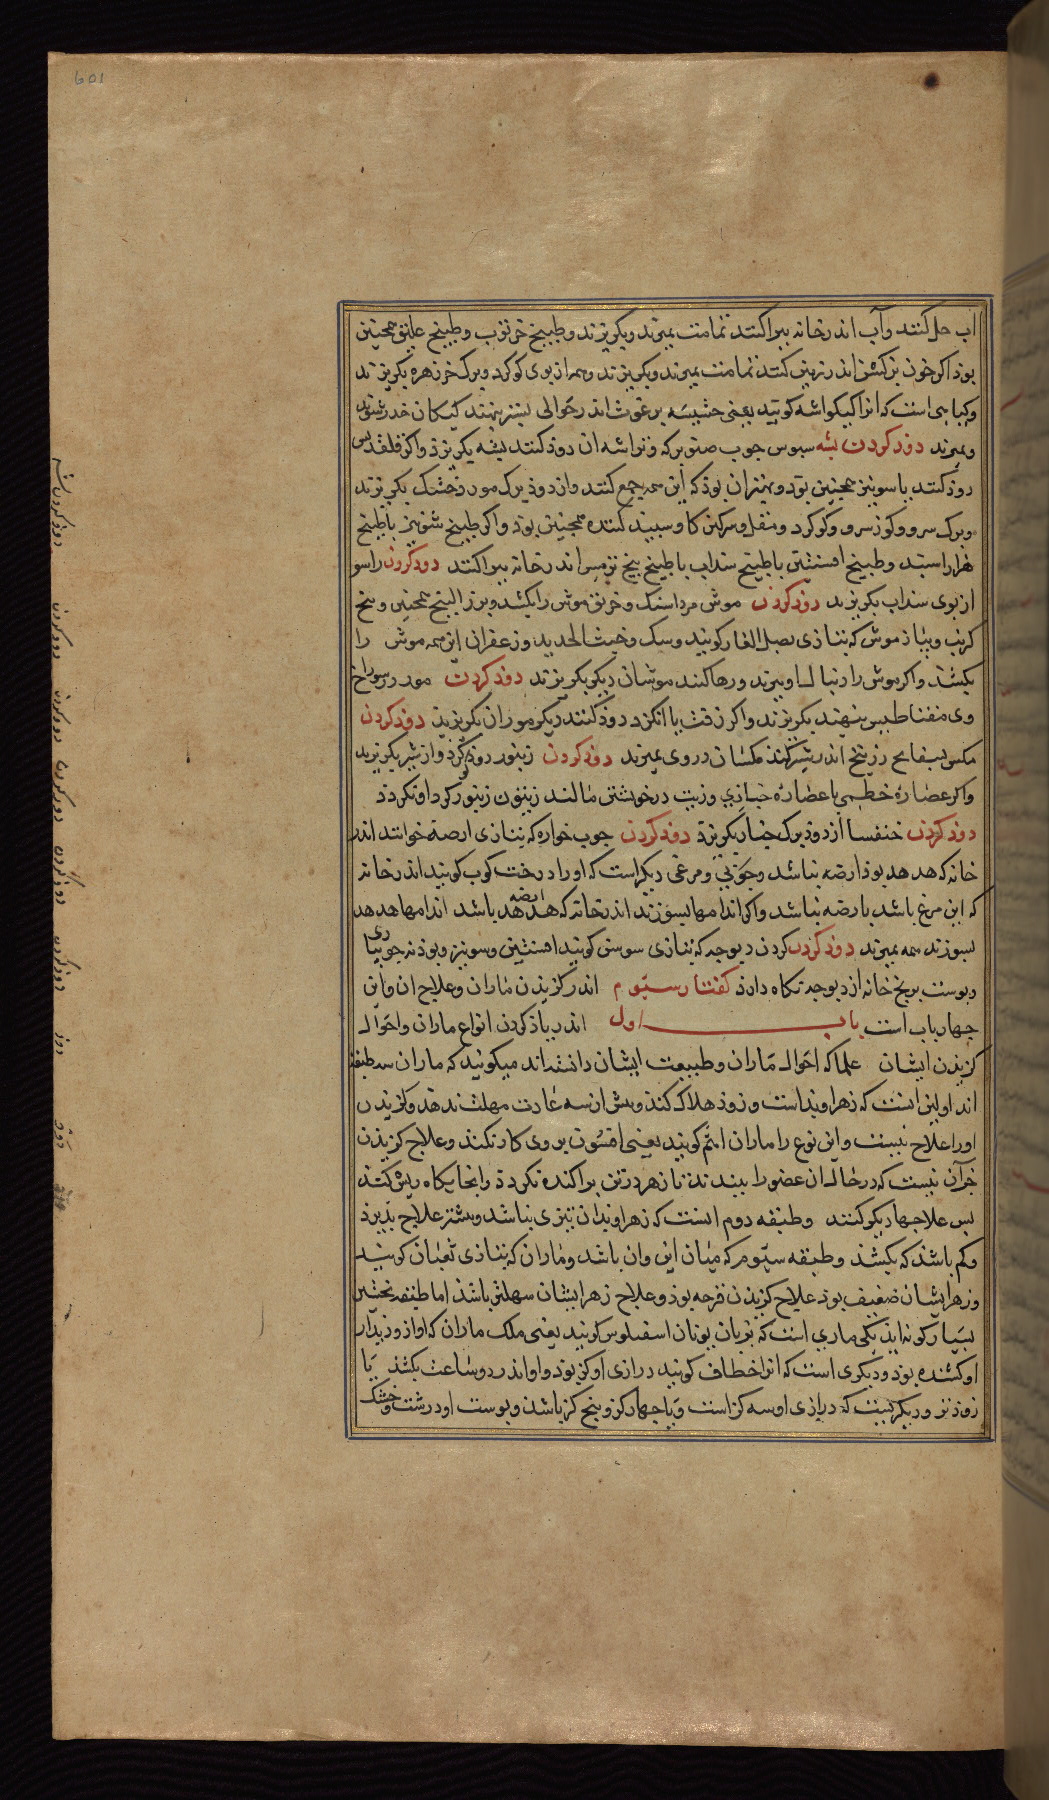 اب حل کنند و آب اندر خانه بپراکنند تمامت بمیرند و بگریزند و طبیخ خرنوب و طبیخ علیق همچنین
بوذ اگر خون بز کشن اندر زمین کنند تمامت بمیرند و بگریزند و همه از بوی کوکرد و برک خرزهره بگریزند
و کیاهی است که انرا کیکواشه کویند یعنی حشیشه برغوث اندر حوالی بستر بنهند کیکان خدر شوند
و بمیرند دور کردن بشه سبوس جوب صنوبر که و تراشه ان دوذ کنند بشه بگریزد و اگر قلقدیس
دوذ کنند یا سونیز همچنین بوذ و بهتر ان بوذ که این همه جمع کنند و از دوذ برک مورد خشک بگریزند
و برک سرو و کوز سرو و کوکرد و مقل و سرکین کاو سبید کننده همچنین بوذ و اگر طبیخ شونیز یا طبیخ
هزاراسبند و طبیخ افسنتین یا طبیخ سداب یا طبیخ بیخ ترمس اندر خانه بپراکنند دور کردن راسو
از بوی سداب بگریزد دور کردن موش مرداسنک و خربق موش را بکشد و بزر البنج همچنین و بیخ
کرنب و پیاز موش که بتازی بصل الفار کویند و سک و خبث الحدید و زعفران این همه موش را
بکشد و اگر موش را دنبال او ببرند و رها کنند موشان دیکر بگریزند دور کردن مور در سوراخ
وی مغناطیس بنهند بگریزند و اگر زفت یا انکزد دوذ کنند دیکر موران بگریزند دور کردن
مکس بسفایج زرنیخ اندر شیر کنند مکسان در وی بمیرند دور کردن زنبور دوذ کوکرد و از شیر بگریزند
و اگر عصاره خطمی یا عصاره خبازی و زیت در خویشتن مالند زنبور کرد او نکردد
دور کردن خنفسا از دوذ برک چنار بگریزد دور کردن جوب خواره که بتازی ارضه خوانند اندر
خانه که هدهد بوذ ارضه نباشد و جنوبی و مرغی دیکر است که او را درخت کوب کویند اندر خانه
که این مرغ باشد یا رضه نباشد و اگر اندامها بسوزند اندر خانه که ارضه هدهد باشد اندامها هدهد
بسوزند همه بمیرند دور کردن کردن دیوجه که بتازی سوس کویند افسنتین و سونیز و بوذنه جویباری
و بوست برنج خانه از دیوجه نکاه دارد کفتار سیوم اندر کزیدن ماران و علاج ان و این
چهار باب است باب اول اندر یاد کردن انواع ماران و احوال
کزیدن ایشان علما که احوال ماران و طبیعت ایشان دانسته اند میکویند که ماران سه طبقه
اند اولین انست که زهر او بد است و زوذ هلاک کنذ و بیش از سه ساعت مهلت ندهد و کزیدن
او را علاج نیست و این نوع را ماران اصم کویند یعنی افسون بر وی کار نکند و علاج کزیدن
جز آن نیست که در حال ان عضو را ببندند تا زهر در تن براکنده نکردد و انجایکاه ریش کنند
بس علاجها دیکر کنند و طبقه دوم انست که زهر او بدان تیزی نباشد و بیشتر علاج بذیرذ
و کم باشذ که بکشذ و طبقه سیوم که میان این و ان باشد و ماران که بتازی ثعبان کویند
و زهر ایشان ضعیف بوذ علاج کزیدن قرحه بوذ و علاج زهر ایشان سهلتر باشذ اما طبقه نخستین
بسیار کونه اند یکی ماری است که بزبان یونان اسفیلوس کویند یعنی ملک ماران که اواز و دیدار
او کشنده بوذ و دیکری است که انرا خطاف کویند درازی او کز بوذ و او اندر دو ساعت بکشذ یا
زوذتر و دیکر نیست که درازی او سه کز است و یا چهار کز و پنج کز باشذ و بوست او درشت و خشک